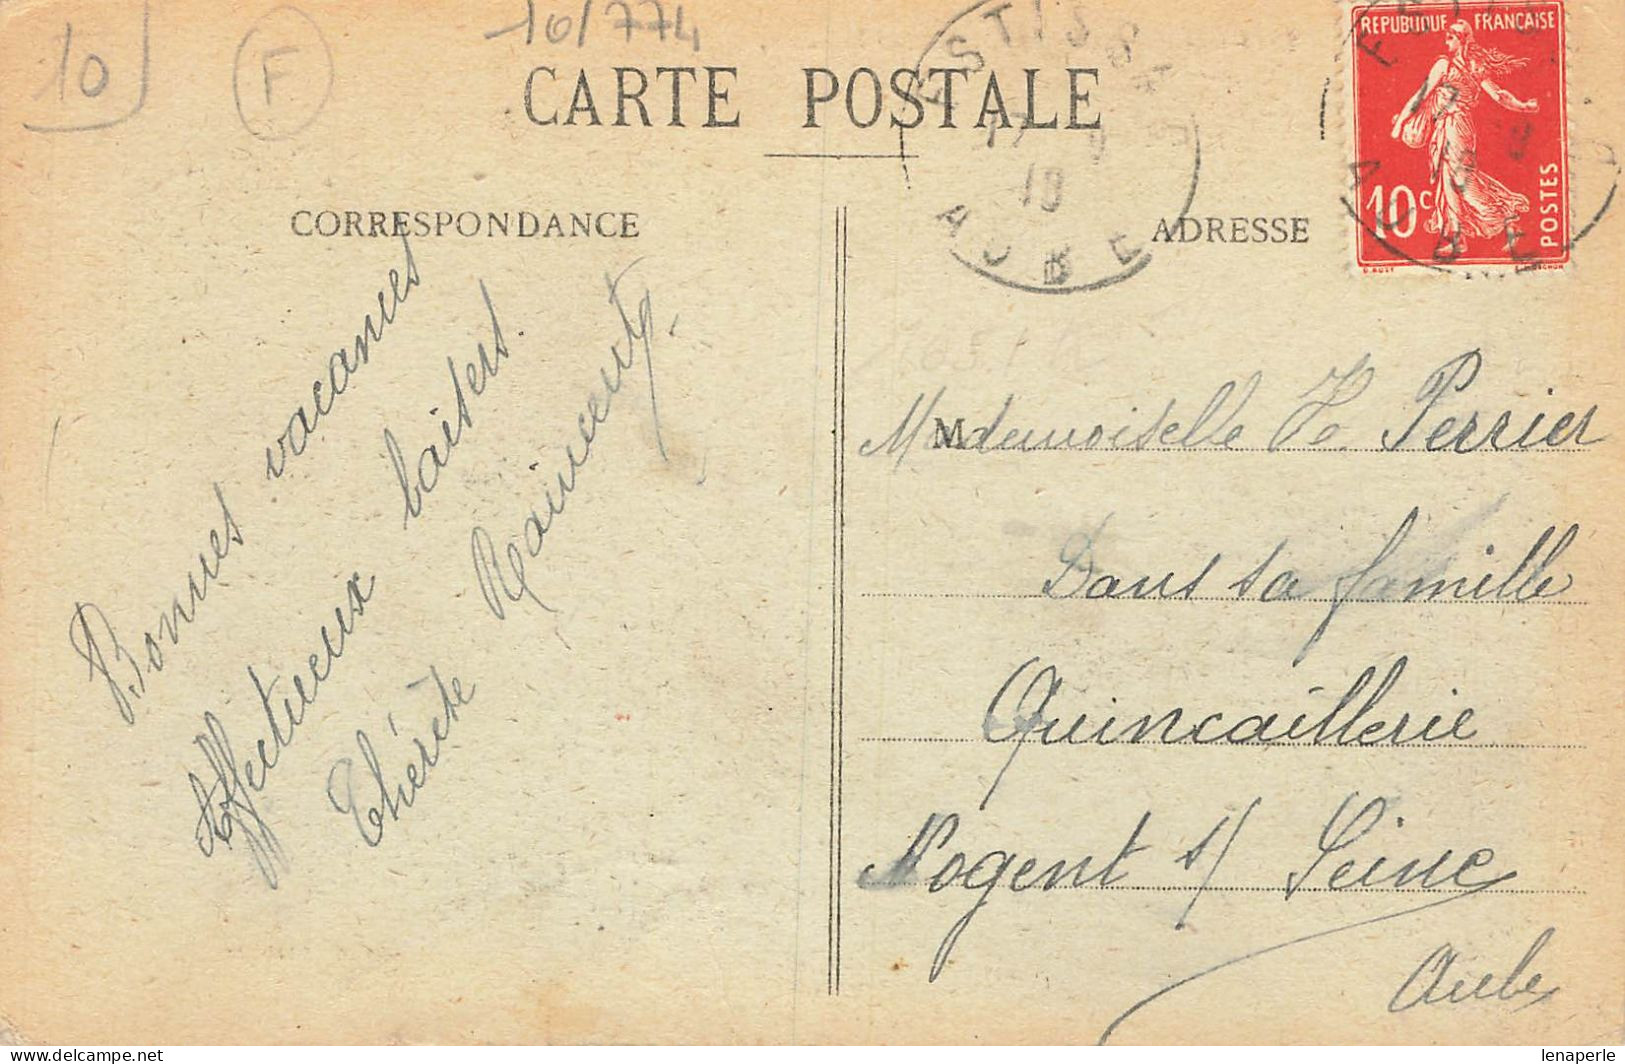 10
F
10/774
CARTE POSTALE
ESTISSA
17
19
AUBE
REPUBLIQUE FRANÇAISE
10c
POSTES
AUBE
CORRESPONDANCE
ADRESSE
Bonnes vacances
Affectueux baisers.
Thérèse
M
Mademoiselle Perrier
Dans sa famille
Quincaillerie
Nogent s/ Seine
Aube
lenaperle